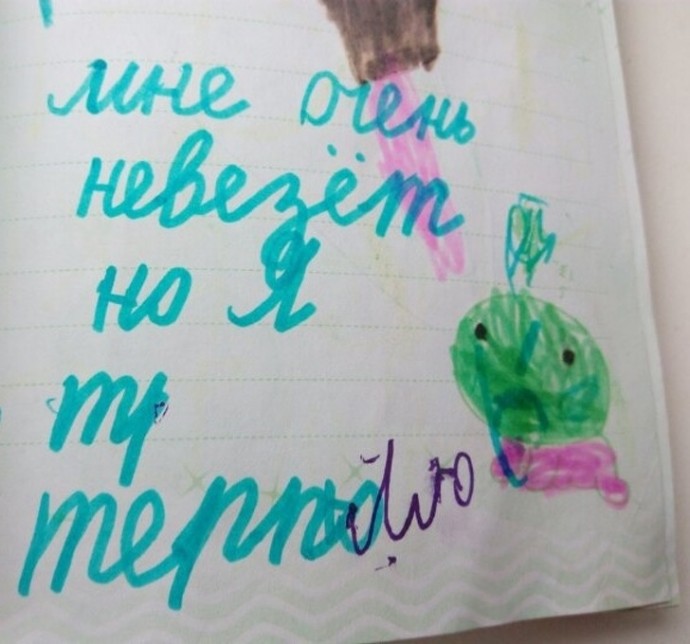 мне очень
невезёт
но я
тр
терплю